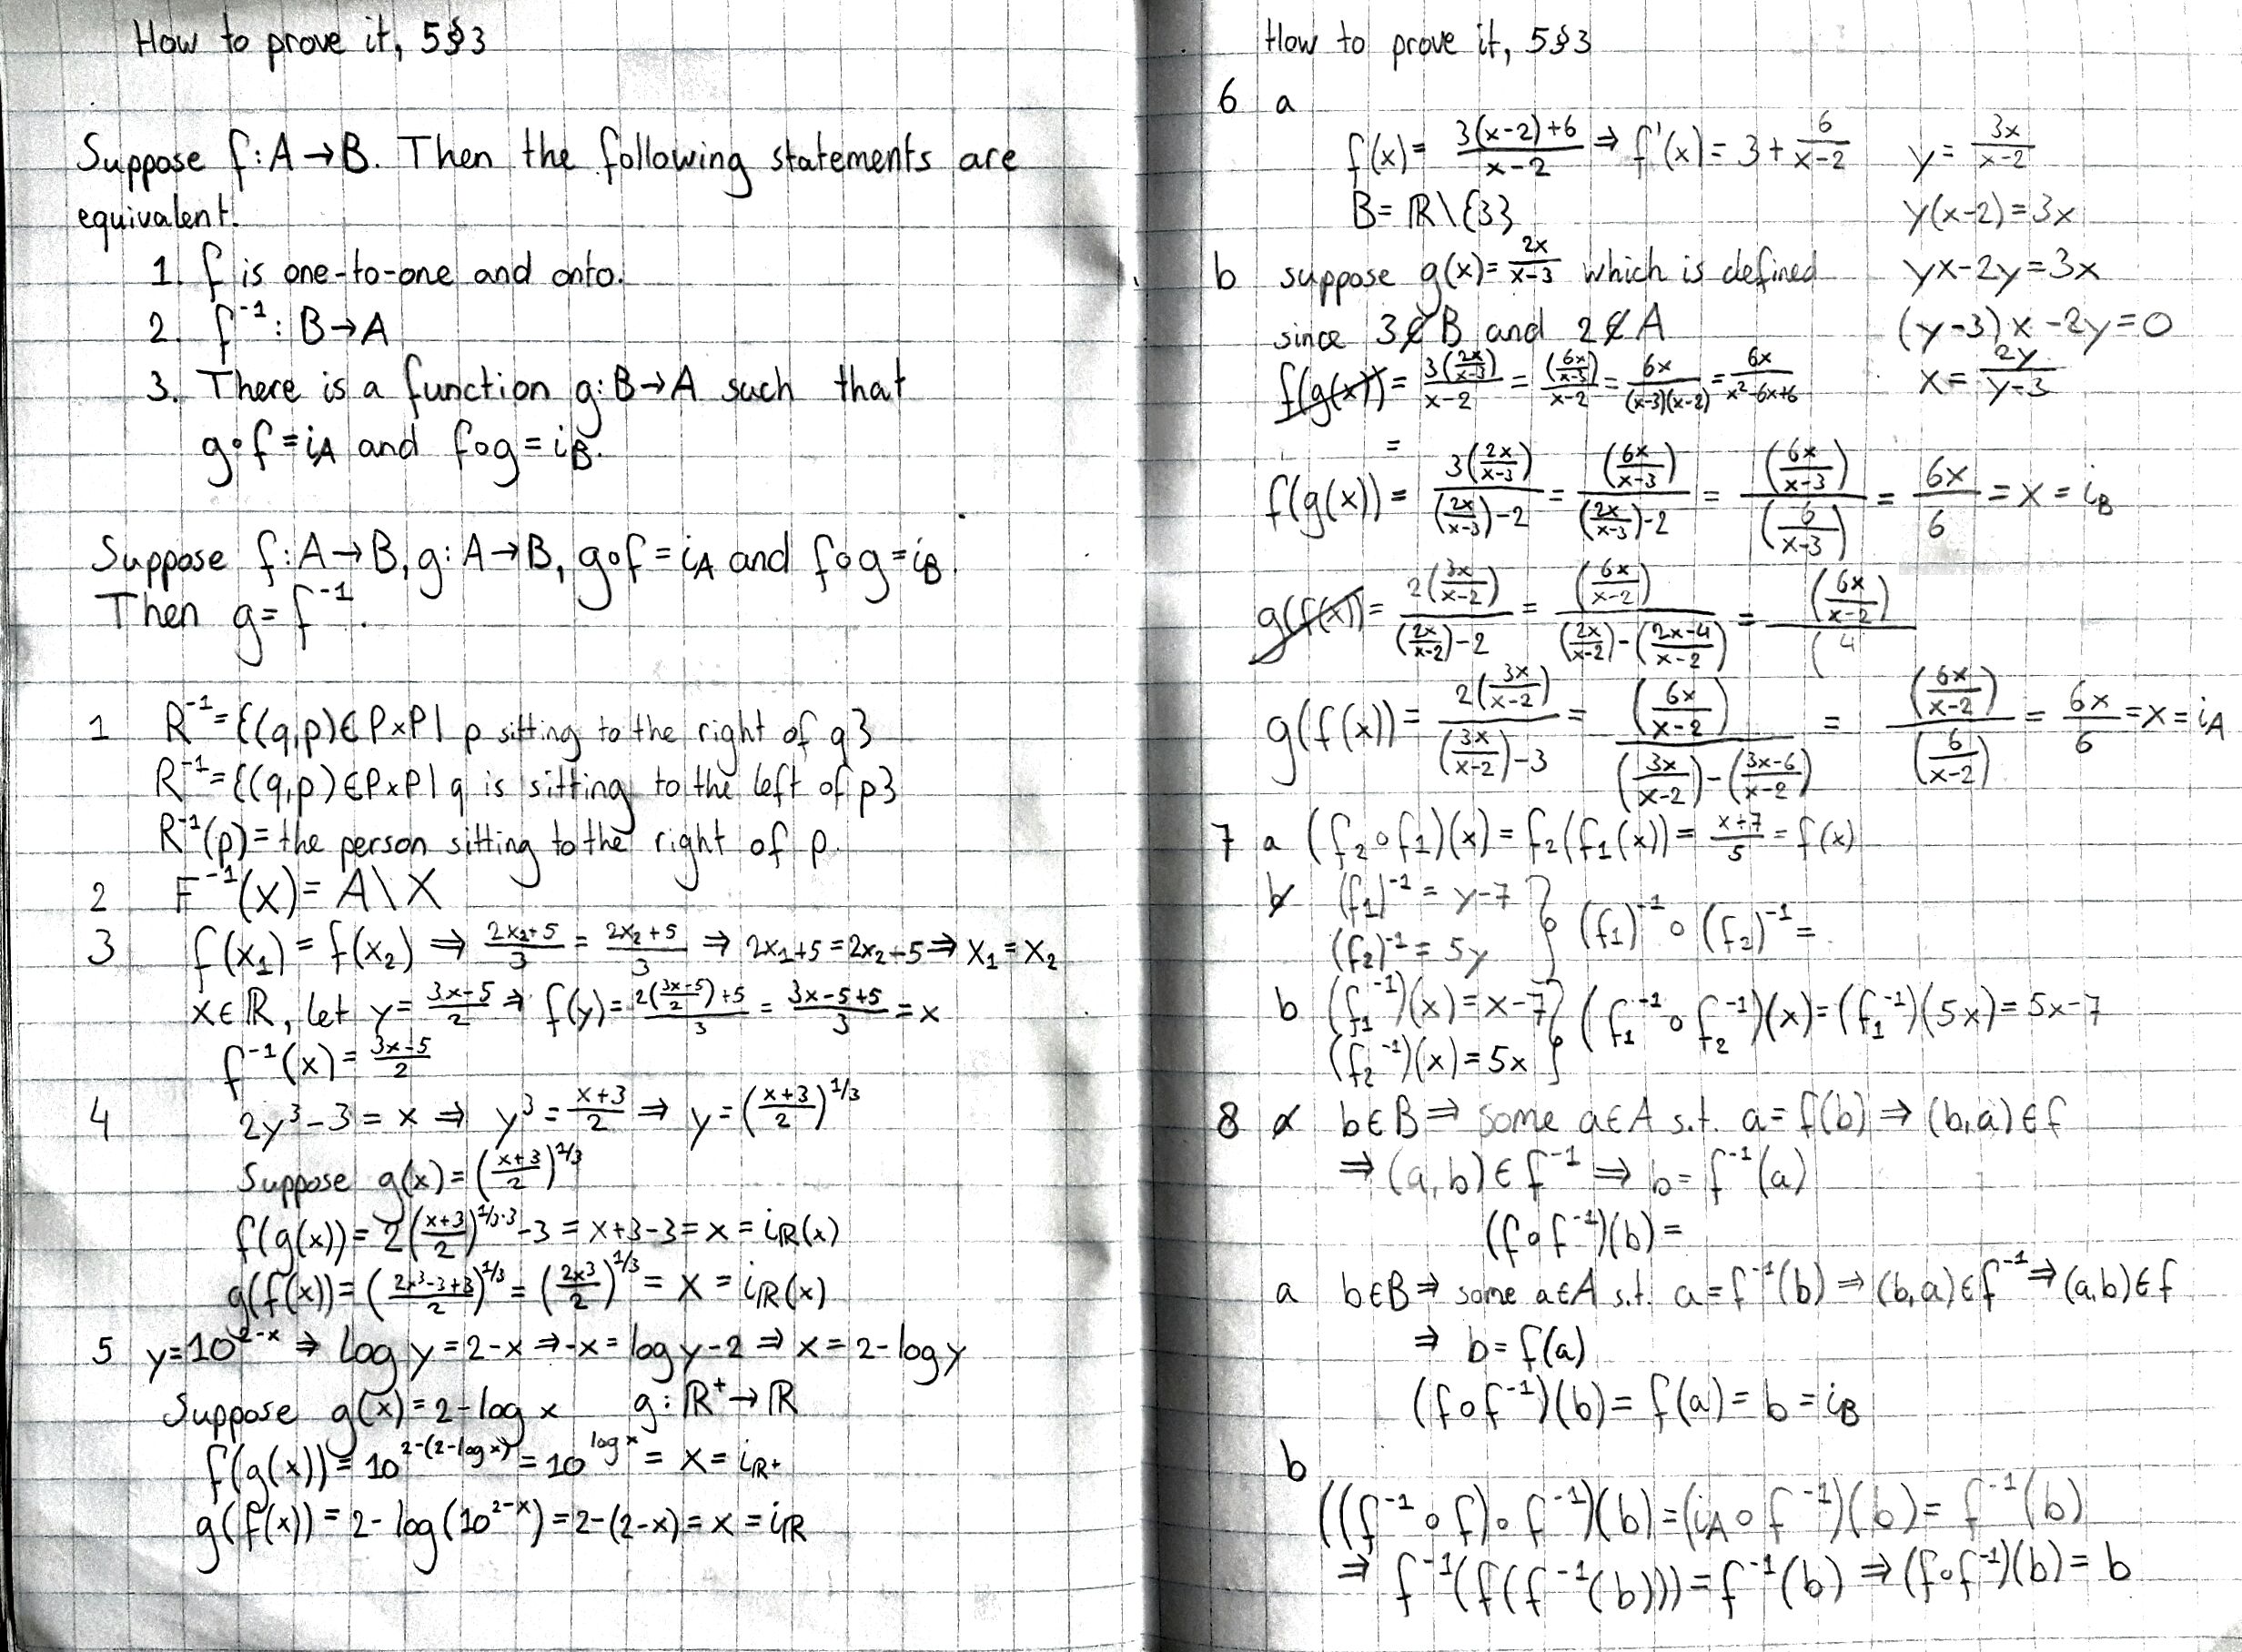 How to prove it, 5§3
Suppose f:A→B. Then the following statements are
equivalent.
1. f is one-to-one and onto.
2. f⁻¹: B→A
3. There is a function g:B→A such that
g∘f = i_A and f∘g = i_B.
Suppose f:A→B, g:A→B, g∘f = i_A and f∘g = i_B.
Then g = f⁻¹.
1 R⁻¹={(q,p)∈P×P| p sitting to the right of q}
R⁻¹={(q,p)∈P×P| q is sitting to the left of p}
R⁻¹(p) = the person sitting to the right of p.
2 F⁻¹(X) = A\X
3 f(x₁) = f(x₂) ⇒ (2x₁+5)/3 = (2x₂+5)/3 ⇒ 2x₁+5=2x₂+5 ⇒ x₁=x₂
x∈ℝ, let y = (3x-5)/2 ⇒ f(y) = (2((3x-5)/2)+5)/3 = (3x-5+5)/3 = x
f⁻¹(x) = (3x-5)/2
4 2y³-3 = x ⇒ y³ = (x+3)/2 ⇒ y = ((x+3)/2)^(1/3)
Suppose g(x) = ((x+3)/2)^(1/3)
f(g(x)) = 2((x+3)/2)^(1/3·3) - 3 = x+3-3 = x = i_ℝ(x)
g(f(x)) = ((2x³-3+3)/2)^(1/3) = (2x³/2)^(1/3) = x = i_ℝ(x)
5 y=10^(2-x) ⇒ log y = 2-x ⇒ -x = log y-2 ⇒ x = 2-log y
Suppose g(x) = 2-log x g: ℝ⁺→ℝ
f(g(x)) = 10^(2-(2-log x)) = 10^(log x) = x = i_ℝ⁺
g(f(x)) = 2-log(10^(2-x)) = 2-(2-x) = x = i_ℝ
How to prove it, 5§3
6 a
f(x) = (3(x-2)+6)/(x-2) ⇒ f'(x) = 3 + 6/(x-2)
B = ℝ\{3}
y = 3x/(x-2)
y(x-2) = 3x
yx-2y = 3x
(y-3)x-2y = 0
x = 2y/(y-3)
b suppose g(x) = 2x/(x-3) which is defined
since 3∉B and 2∉A
f(g(x)) = 3(2x/(x-3))/(x-2) = (6x/(x-3))/(x-2) = 6x/((x-3)(x-2)) = 6x/(x²-6x+6)
=
f(g(x)) = 3(2x/(x-3))/((2x/(x-3))-2) = (6x/(x-3))/((2x/(x-3))-2) = (6x/(x-3))/(6/(x-3)) = 6x/6 = x = i_B
g(f(x)) = 2(3x/(x-2))/((2x/(x-2))-2) = (6x/(x-2))/((2x/(x-2))-((2x-4)/(x-2))) = (6x/(x-2))/(4
g(f(x)) = 2(3x/(x-2))/((3x/(x-2))-3) = (6x/(x-2))/((3x/(x-2))-((3x-6)/(x-2))) = (6x/(x-2))/(6/(x-2)) = 6x/6 = x = i_A
7 a (f₂∘f₁)(x) = f₂(f₁(x)) = (x+7)/5 = f(x)
b (f₁)⁻¹ = y-7
(f₂)⁻¹ = 5y } (f₁)⁻¹∘(f₂)⁻¹ =
b (f₁⁻¹)(x) = x-7
(f₂⁻¹)(x) = 5x } (f₁⁻¹∘f₂⁻¹)(x) = (f₁⁻¹)(5x) = 5x-7
8 a b∈B ⇒ some a∈A s.t. a = f(b) ⇒ (b,a)∈f
⇒ (a,b)∈f⁻¹ ⇒ b = f⁻¹(a)
(f∘f⁻¹)(b) =
a b∈B ⇒ some a∈A s.t. a = f⁻¹(b) ⇒ (b,a)∈f⁻¹ ⇒ (a,b)∈f
⇒ b = f(a)
(f∘f⁻¹)(b) = f(a) = b = i_B
b
((f⁻¹∘f)∘f⁻¹)(b) = (i_A∘f⁻¹)(b) = f⁻¹(b)
⇒ f⁻¹(f(f⁻¹(b))) = f⁻¹(b) ⇒ (f∘f⁻¹)(b) = b